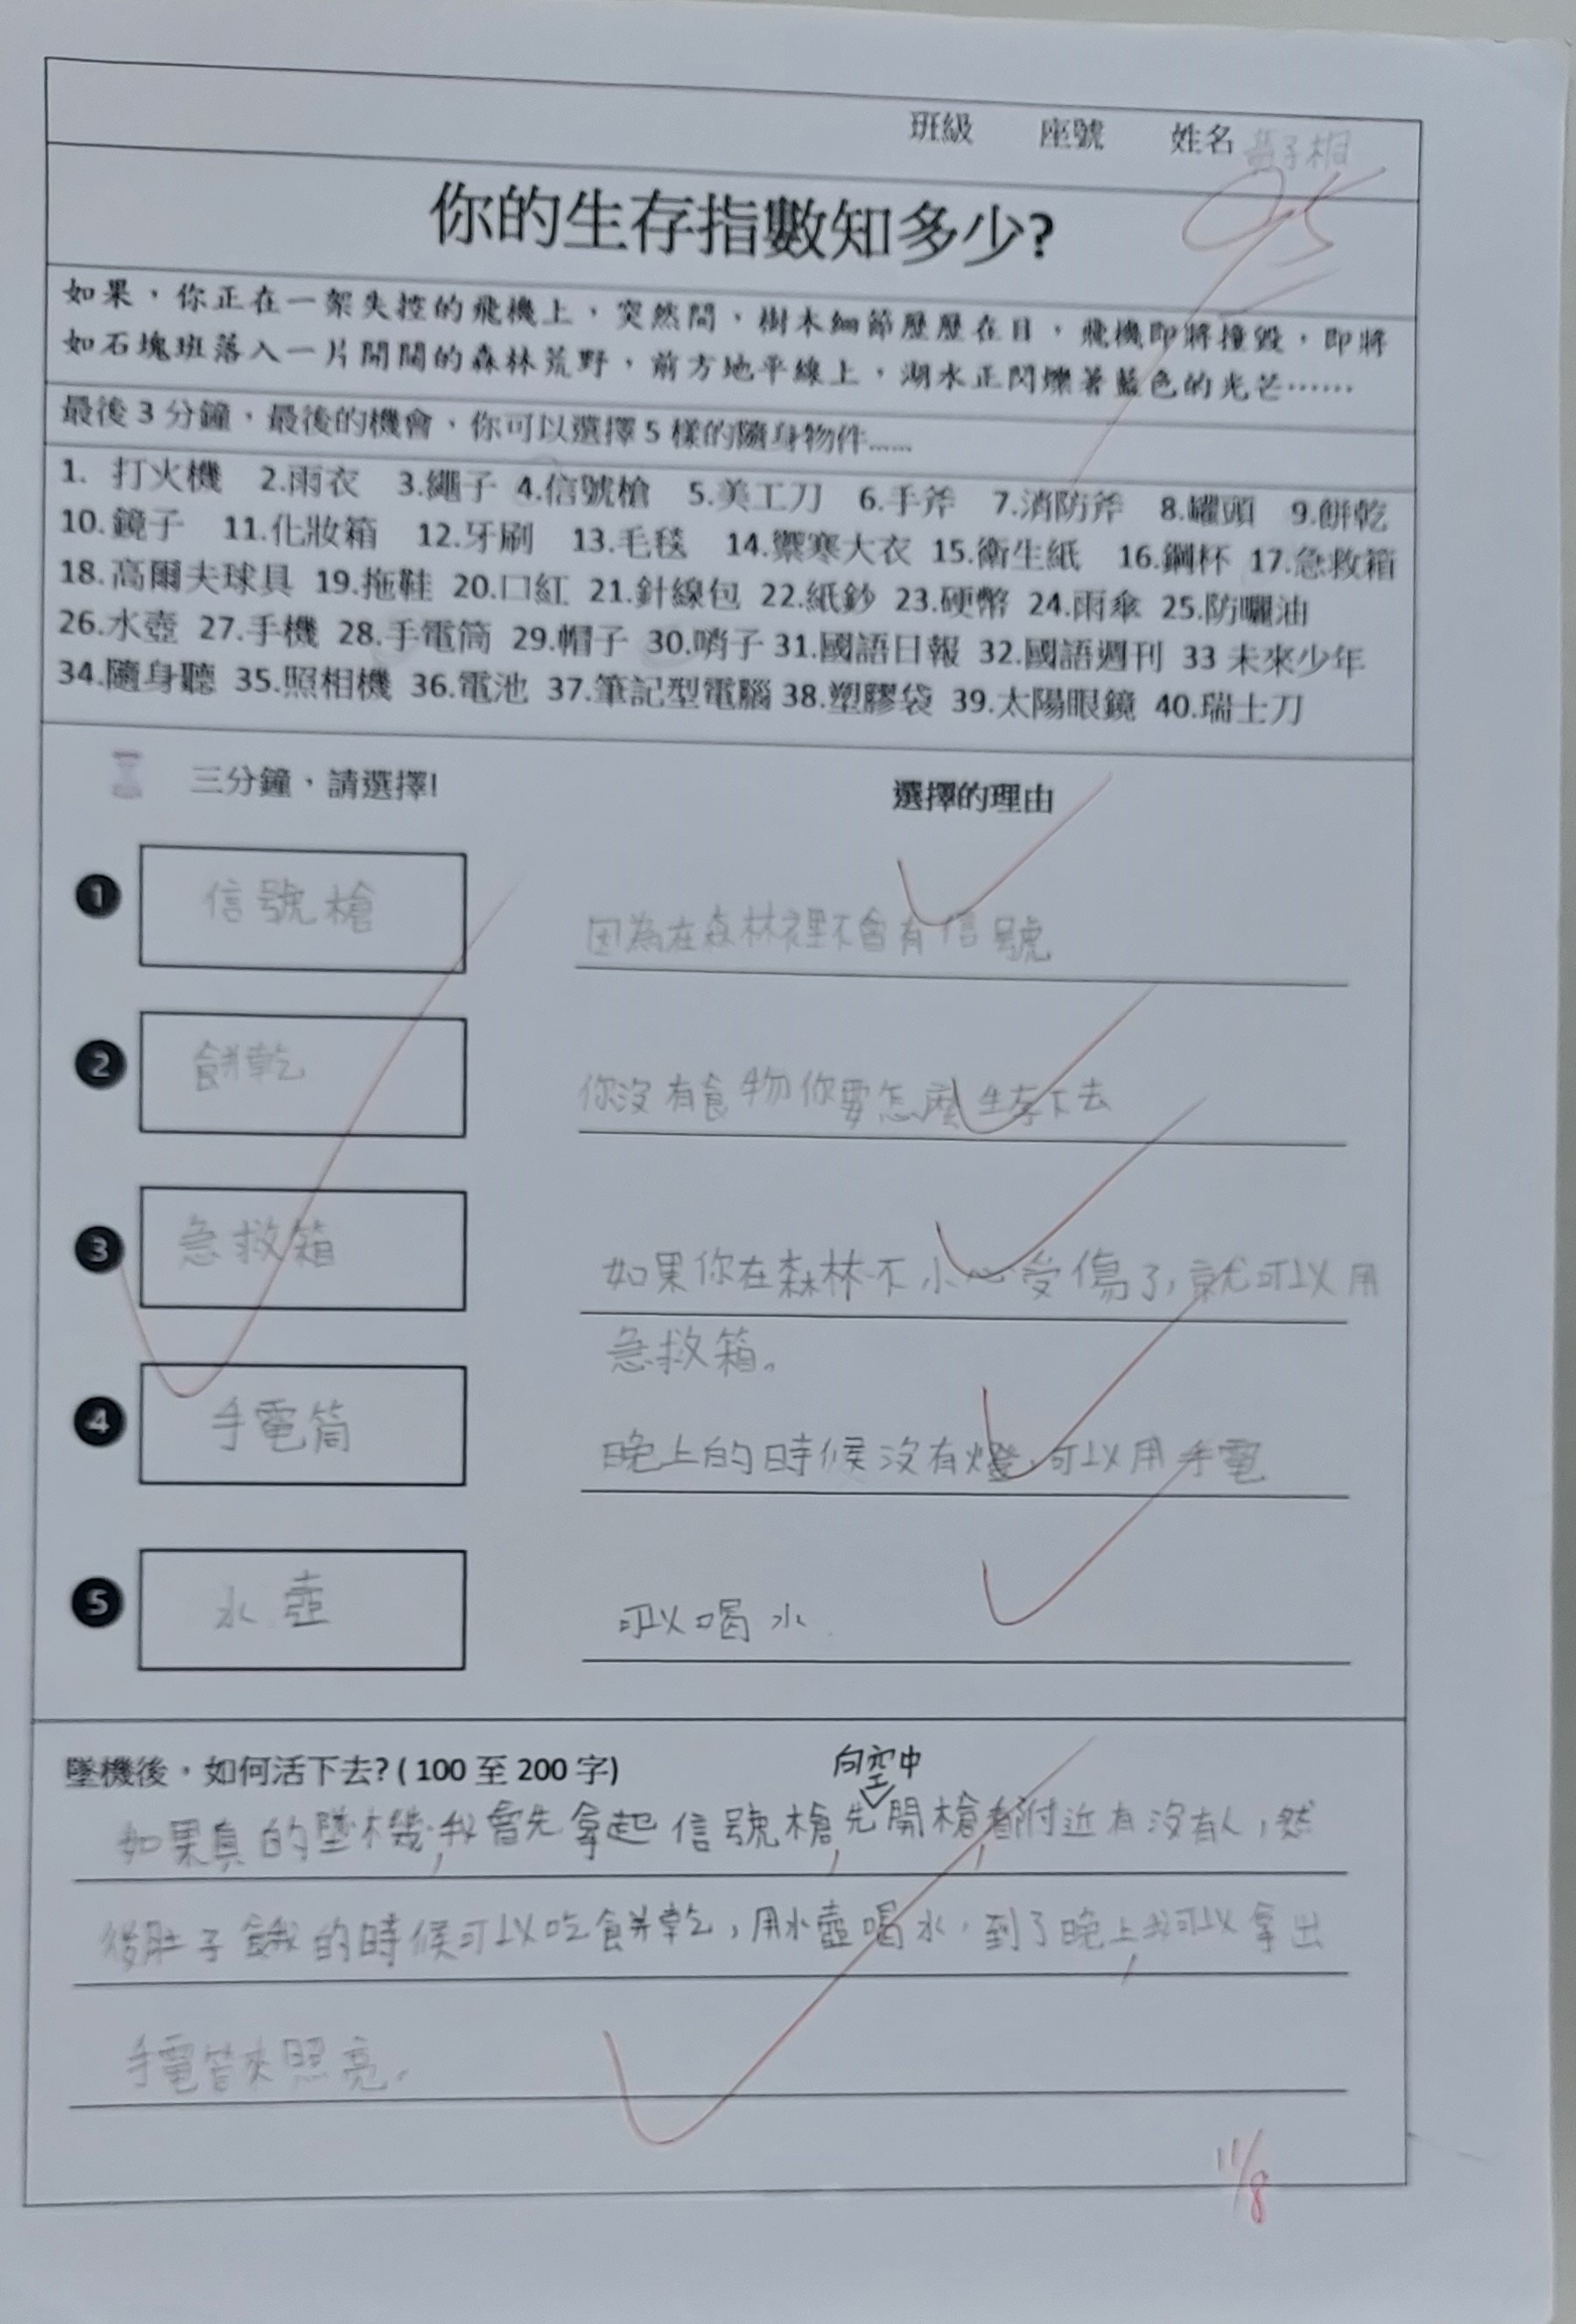 班級 座號 姓名 子桐
95
你的生存指數知多少?
如果，你正在一架失控的飛機上，突然間，樹木細節歷歷在目，飛機即將撞毀，即將
如石塊班落入一片開闊的森林荒野，前方地平線上，湖水正閃爍著藍色的光芒……
最後 3 分鐘，最後的機會，你可以選擇 5 樣的隨身物件……
1. 打火機 2.雨衣 3.繩子 4.信號槍 5.美工刀 6.手斧 7.消防斧 8.罐頭 9.餅乾
10.鏡子 11.化妝箱 12.牙刷 13.毛毯 14.禦寒大衣 15.衛生紙 16.鋼杯 17.急救箱
18.高爾夫球具 19.拖鞋 20.口紅 21.針線包 22.紙鈔 23.硬幣 24.雨傘 25.防曬油
26.水壺 27.手機 28.手電筒 29.帽子 30.哨子 31.國語日報 32.國語週刊 33 未來少年
34.隨身聽 35.照相機 36.電池 37.筆記型電腦 38.塑膠袋 39.太陽眼鏡 40.瑞士刀
三分鐘，請選擇! 選擇的理由
1 信號槍 因為在森林裡不會有信號
2 餅乾 你沒有食物你要怎麼生存下去
3 急救箱 如果你在森林不小心受傷了,就可以用
急救箱。
4 手電筒 晚上的時候沒有燈,可以用手電
5 水壺 可以喝水
墜機後，如何活下去? ( 100 至 200 字)
向空中
如果真的墜機,我會先拿起信號槍,先開槍,看附近有沒有人,然
後肚子餓的時候可以吃餅乾,用水壺喝水,到了晚上,我可以拿出
手電筒來照亮。
11/8